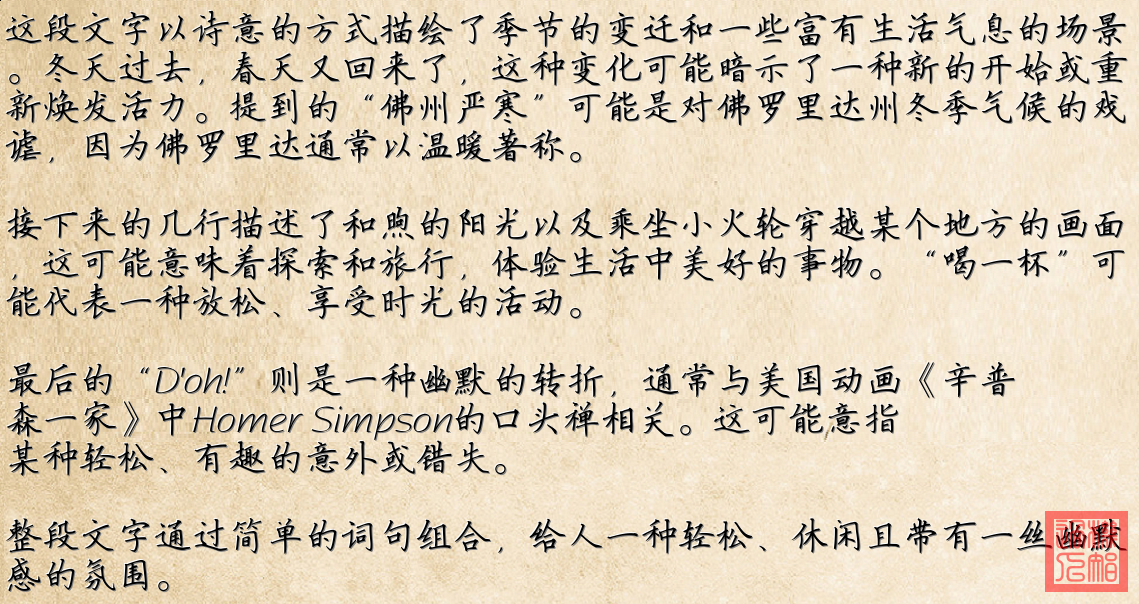 这段文字以诗意的方式描绘了季节的变迁和一些富有生活气息的场景
。冬天过去，春天又回来了，这种变化可能暗示了一种新的开始或重
新焕发活力。提到的“佛州严寒”可能是对佛罗里达州冬季气候的戏
谑，因为佛罗里达通常以温暖著称。
接下来的几行描述了和煦的阳光以及乘坐小火轮穿越某个地方的画面
，这可能意味着探索和旅行，体验生活中美好的事物。“喝一杯”可
能代表一种放松、享受时光的活动。
最后的“D'oh!”则是一种幽默的转折，通常与美国动画《辛普
森一家》中Homer Simpson的口头禅相关。这可能,意指
某种轻松、有趣的意外或错失。
整段文字通过简单的词句组合，给人一种轻松、休闲且带有一丝幽默
感的氛围。